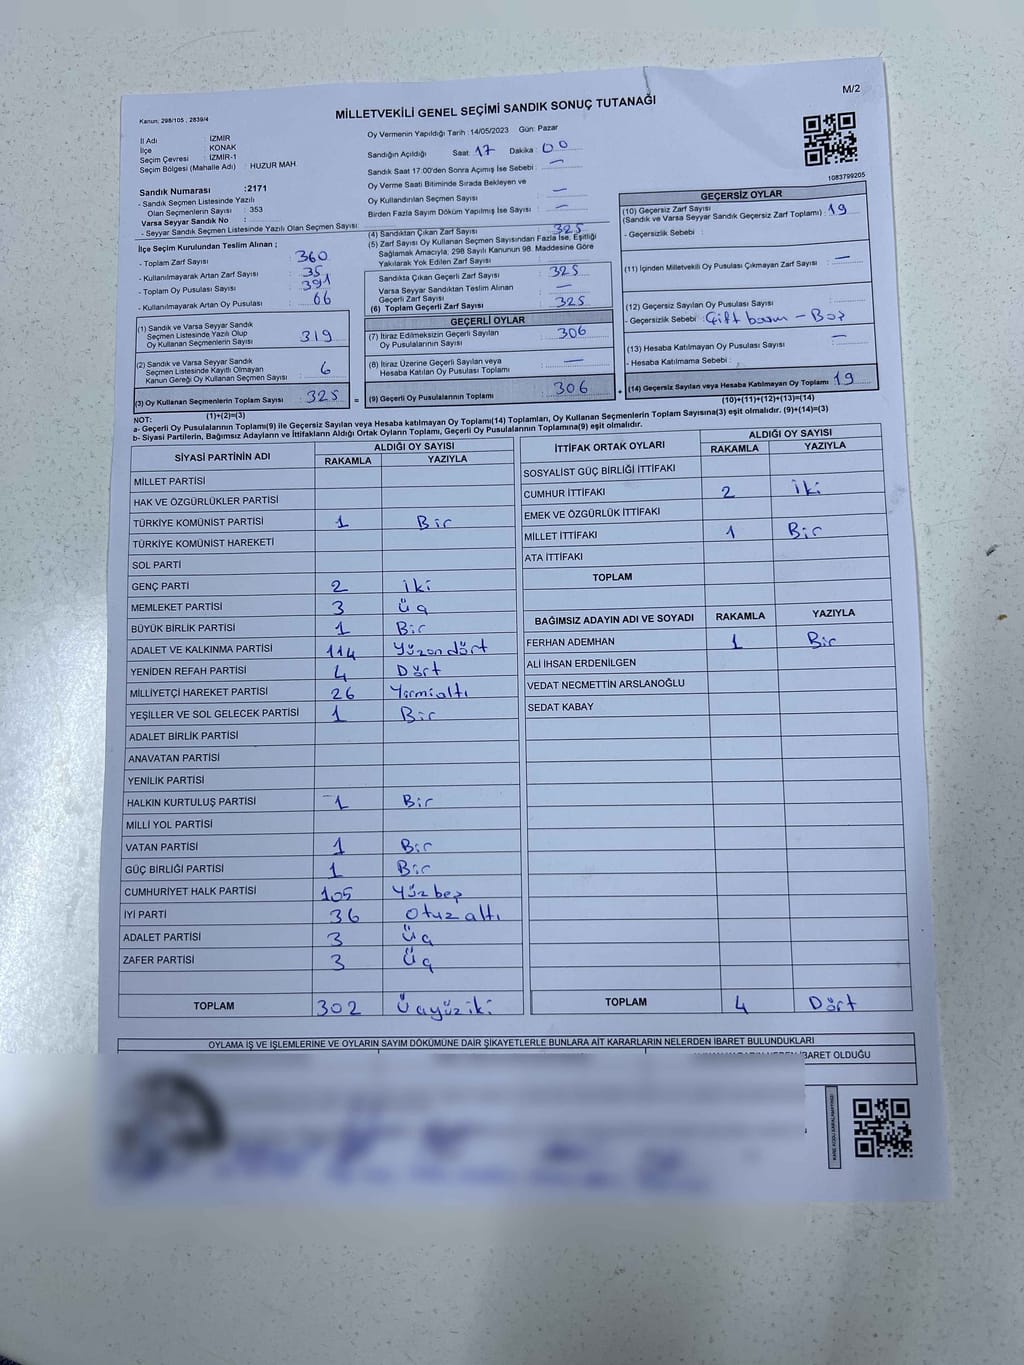 M/2
Kanun: 298/105 , 2839/4
MİLLETVEKİLİ GENEL SEÇİMİ SANDIK SONUÇ TUTANAĞI
İl Adı : İZMİR
İlçe : KONAK
Seçim Çevresi : İZMİR-1
Seçim Bölgesi (Mahalle Adı) : HUZUR MAH
Sandık Numarası :2171
- Sandık Seçmen Listesinde Yazılı
Olan Seçmenlerin Sayısı : 353
Varsa Seyyar Sandık No :
- Seyyar Sandık Seçmen Listesinde Yazılı Olan Seçmen Sayısı:
İlçe Seçim Kurulundan Teslim Alınan ;
- Toplam Zarf Sayısı : 360
- Kullanılmayarak Artan Zarf Sayısı : 35
- Toplam Oy Pusulası Sayısı : 391
- Kullanılmayarak Artan Oy Pusulası : 66
(1) Sandık ve Varsa Seyyar Sandık
Seçmen Listesinde Yazılı Olup
Oy Kullanan Seçmenlerin Sayısı : 319
(2) Sandık ve Varsa Seyyar Sandık
Seçmen Listesinde Kayıtlı Olmayan
Kanun Gereği Oy Kullanan Seçmen Sayısı : 6
(3) Oy Kullanan Seçmenlerin Toplam Sayısı : 325
(1)+(2)=(3)
Oy Vermenin Yapıldığı Tarih :14/05/2023 Gün: Pazar
Sandığın Açıldığı Saat: 17 Dakika: 00
Sandık Saat 17:00'den Sonra Açımış İse Sebebi : —
Oy Verme Saati Bitiminde Sırada Bekleyen ve
Oy Kullandırılan Seçmen Sayısı : —
Birden Fazla Sayım Döküm Yapılmış İse Sayısı : —
(4) Sandıktan Çıkan Zarf Sayısı : 325
(5) Zarf Sayısı Oy Kullanan Seçmen Sayısından Fazla İse, Eşitliği
Sağlamak Amacıyla, 298 Sayılı Kanunun 98. Maddesine Göre
Yakılarak Yok Edilen Zarf Sayısı :
Sandıkta Çıkan Geçerli Zarf Sayısı : 325
Varsa Seyyar Sandıktan Teslim Alınan
Geçerli Zarf Sayısı : —
(6) Toplam Geçerli Zarf Sayısı : 325
GEÇERLİ OYLAR
(7) İtiraz Edilmeksizin Geçerli Sayılan
Oy Pusulalarının Sayısı : 306
(8) İtiraz Üzerine Geçerli Sayılan veya
Hesaba Katılan Oy Pusulası Toplamı : —
(9) Geçerli Oy Pusulalarının Toplamı : 306
1083799205
GEÇERSİZ OYLAR
(10) Geçersiz Zarf Sayısı
(Sandık ve Varsa Seyyar Sandık Geçersiz Zarf Toplamı) : 19
- Geçersizlik Sebebi :
(11) İçinden Milletvekili Oy Pusulası Çıkmayan Zarf Sayısı : —
(12) Geçersiz Sayılan Oy Pusulası Sayısı :
- Geçersizlik Sebebi : Çift basım - Boş
(13) Hesaba Katılmayan Oy Pusulası Sayısı : —
- Hesaba Katılmama Sebebi :
(14) Geçersiz Sayılan veya Hesaba Katılmayan Oy Toplamı : 19
(10)+(11)+(12)+(13)=(14)
NOT:
a- Geçerli Oy Pusulalarının Toplamı(9) ile Geçersiz Sayılan veya Hesaba katılmayan Oy Toplamı(14) Toplamları, Oy Kullanan Seçmenlerin Toplam Sayısına(3) eşit olmalıdır. (9)+(14)=(3)
b- Siyasi Partilerin, Bağımsız Adayların ve İttifakların Aldığı Ortak Oyların Toplamı, Geçerli Oy Pusulalarının Toplamına(9) eşit olmalıdır.
SİYASİ PARTİNİN ADI ALDIĞI OY SAYISI
RAKAMLA YAZIYLA
MİLLET PARTİSİ
HAK VE ÖZGÜRLÜKLER PARTİSİ
TÜRKİYE KOMÜNİST PARTİSİ 1 Bir
TÜRKİYE KOMÜNİST HAREKETİ
SOL PARTİ
GENÇ PARTİ 2 iki
MEMLEKET PARTİSİ 3 üç
BÜYÜK BİRLİK PARTİSİ 1 Bir
ADALET VE KALKINMA PARTİSİ 114 Yüzondört
YENİDEN REFAH PARTİSİ 4 Dört
MİLLİYETÇİ HAREKET PARTİSİ 26 Yirmialtı
YEŞİLLER VE SOL GELECEK PARTİSİ 1 Bir
ADALET BİRLİK PARTİSİ
ANAVATAN PARTİSİ
YENİLİK PARTİSİ
HALKIN KURTULUŞ PARTİSİ 1 Bir
MİLLİ YOL PARTİSİ
VATAN PARTİSİ 1 Bir
GÜÇ BİRLİĞİ PARTİSİ 1 Bir
CUMHURİYET HALK PARTİSİ 105 Yüzbeş
İYİ PARTİ 36 Otuzaltı
ADALET PARTİSİ 3 Üç
ZAFER PARTİSİ 3 Üç
TOPLAM 302 Üçyüziki
İTTİFAK ORTAK OYLARI ALDIĞI OY SAYISI
RAKAMLA YAZIYLA
SOSYALİST GÜÇ BİRLİĞİ İTTİFAKI
CUMHUR İTTİFAKI 2 iki
EMEK VE ÖZGÜRLÜK İTTİFAKI
MİLLET İTTİFAKI 1 Bir
ATA İTTİFAKI
TOPLAM
BAĞIMSIZ ADAYIN ADI VE SOYADI RAKAMLA YAZIYLA
FERHAN ADEMHAN 1 Bir
ALİ İHSAN ERDENİLGEN
VEDAT NECMETTİN ARSLANOĞLU
SEDAT KABAY
TOPLAM 4 Dört
OYLAMA İŞ VE İŞLEMLERİNE VE OYLARIN SAYIM DÖKÜMÜNE DAİR ŞİKAYETLERLE BUNLARA AİT KARARLARIN NELERDEN İBARET BULUNDUKLARI
İBARET OLDUĞU